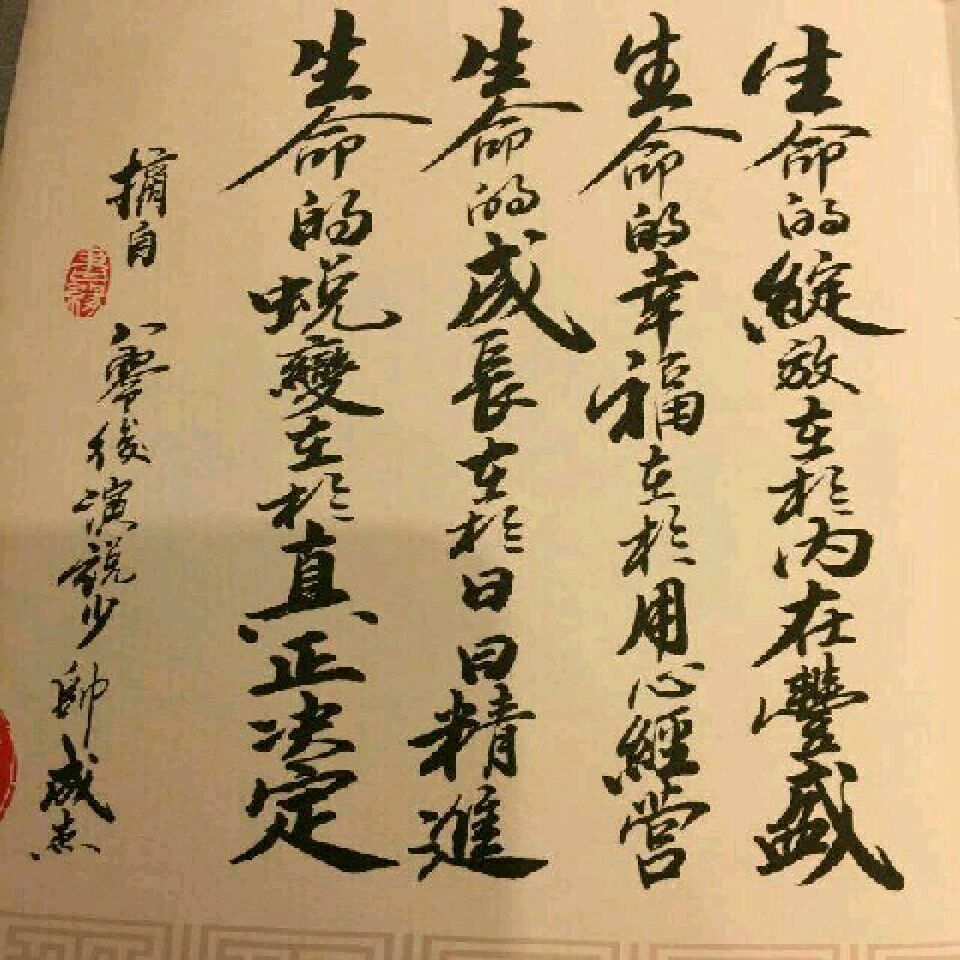 生命的綻放在於内在豐盛
生命的幸福在於用心經營
生命的成長在於日日精進
生命的蜕變在於真正决定
摘自
八零後演説少帥成杰